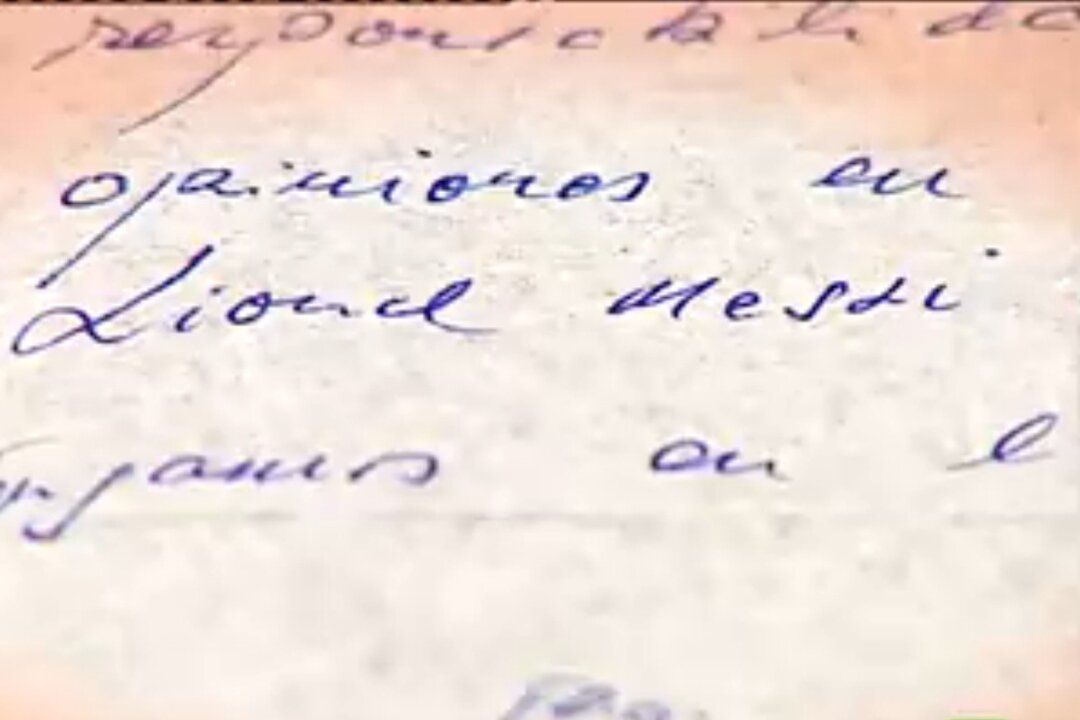 responsabilida
opiniones en
Lionel Messi
en l